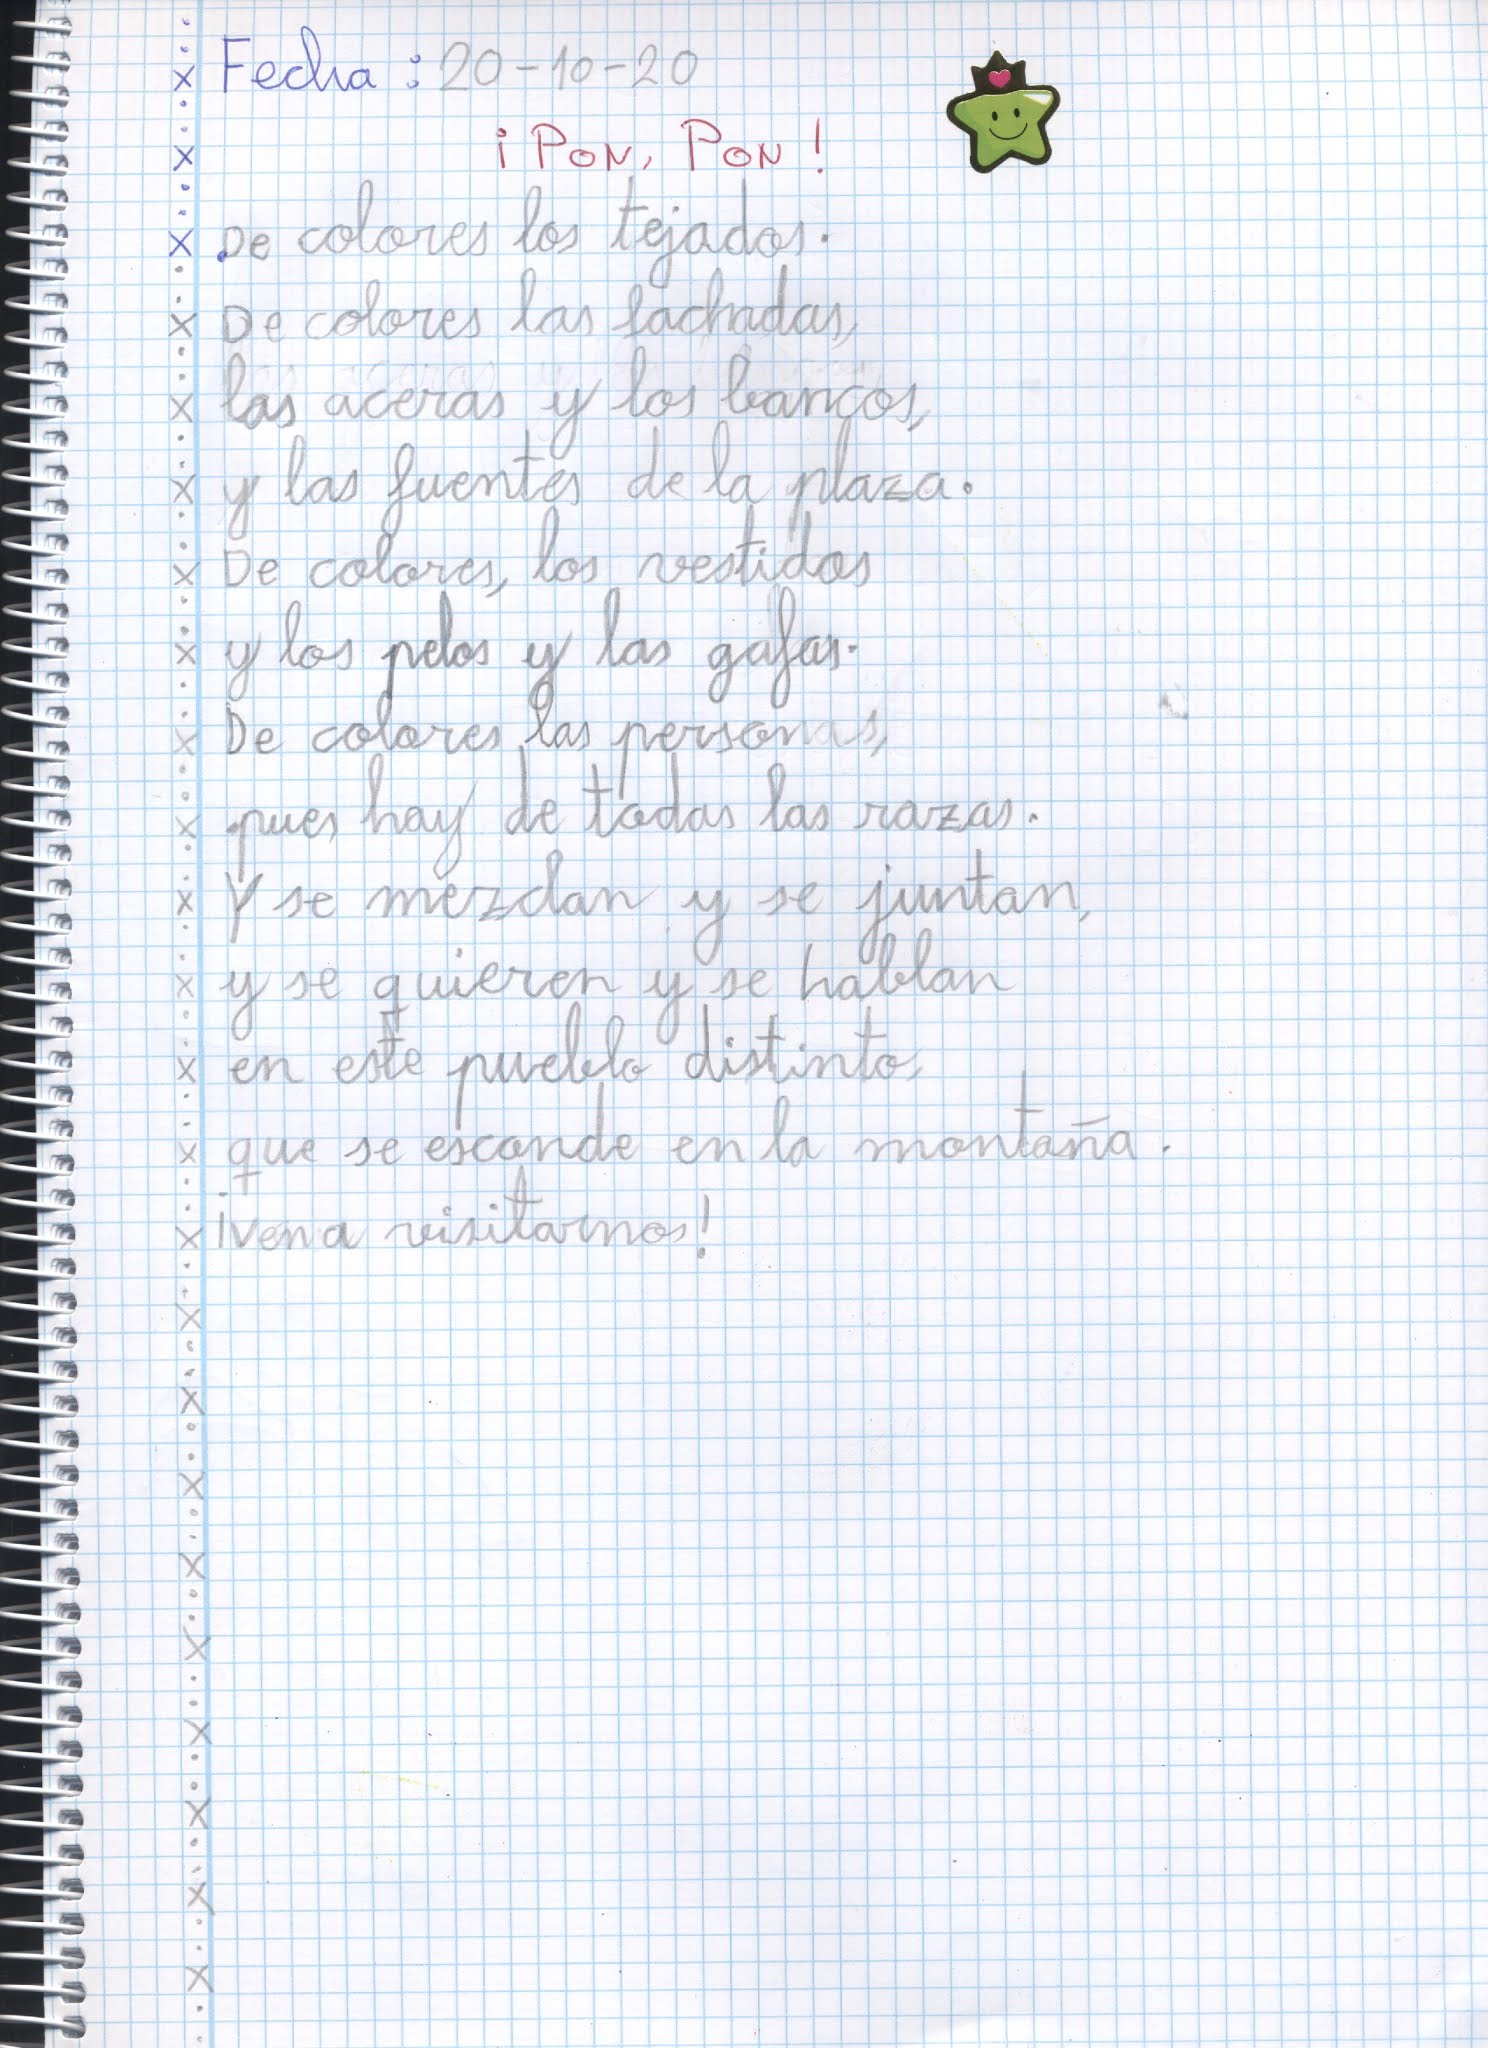 Fecha: 20-10-20
¡PON, PON!
De colores los tejados.
De colores las fachadas,
las aceras y los bancos,
y las fuentes de la plaza.
De colores, los vestidos
y los pelos y las gafas.
De colores las personas,
pues hay de todas las razas.
Y se mezclan y se juntan,
y se quieren y se hablan
en este pueblo distinto,
que se esconde en la montaña.
¡Ven a visitarnos!